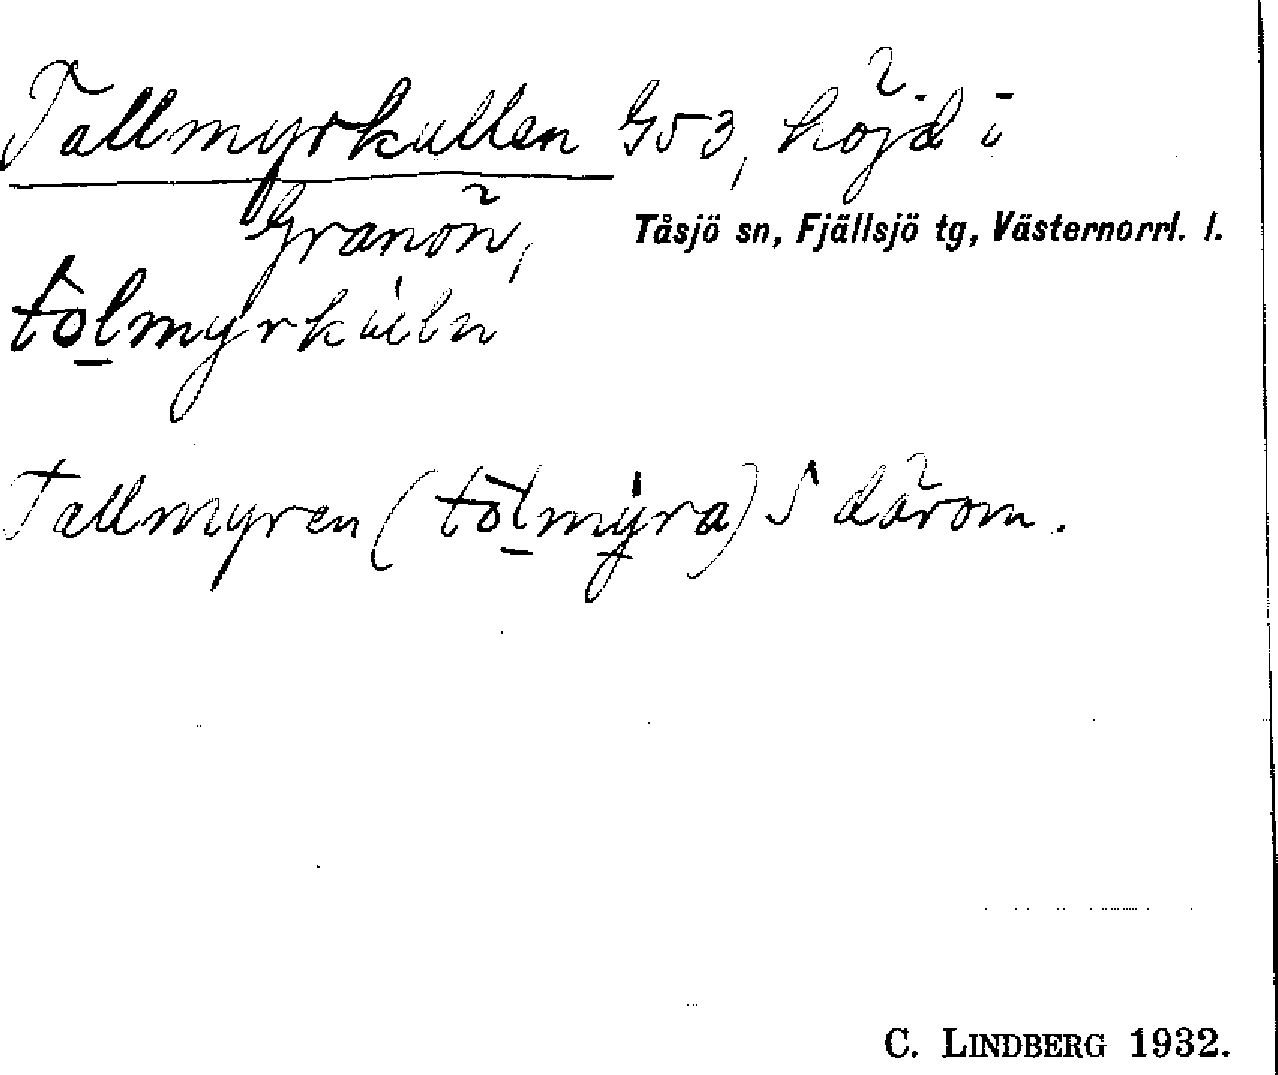 Tallmyrkullen G53, höjd i
Granön, Tåsjö sn, Fjällsjö tg, Västernorrl. l.
Tallmyren (tòlmýra) S därom.
C. LINDBERG 1932.